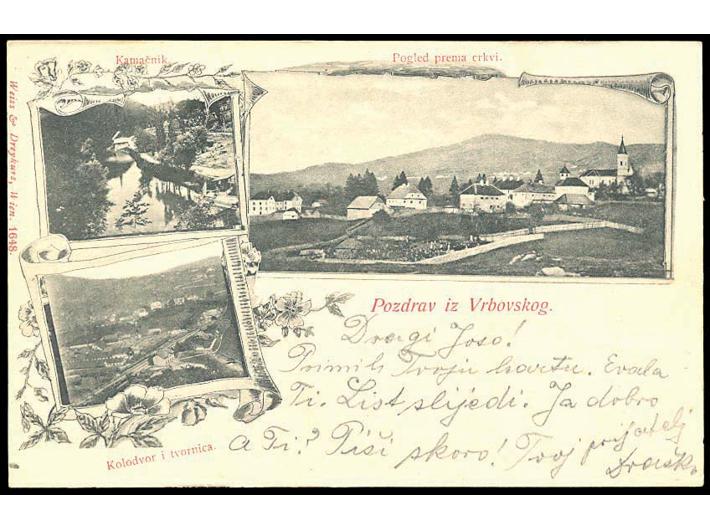 Kamačnik.
Pogled prema crkvi.
Weiss & Dreykurs, Wien. 1648.
Pozdrav iz Vrbovskog.
Dragi Joso!
Primih Tvoju kartu. Evala
Ti. List slijedi. Ja dobro
a Ti? Piši skoro! Tvoj prijatelj
Draško
Kolodvor i tvornica.